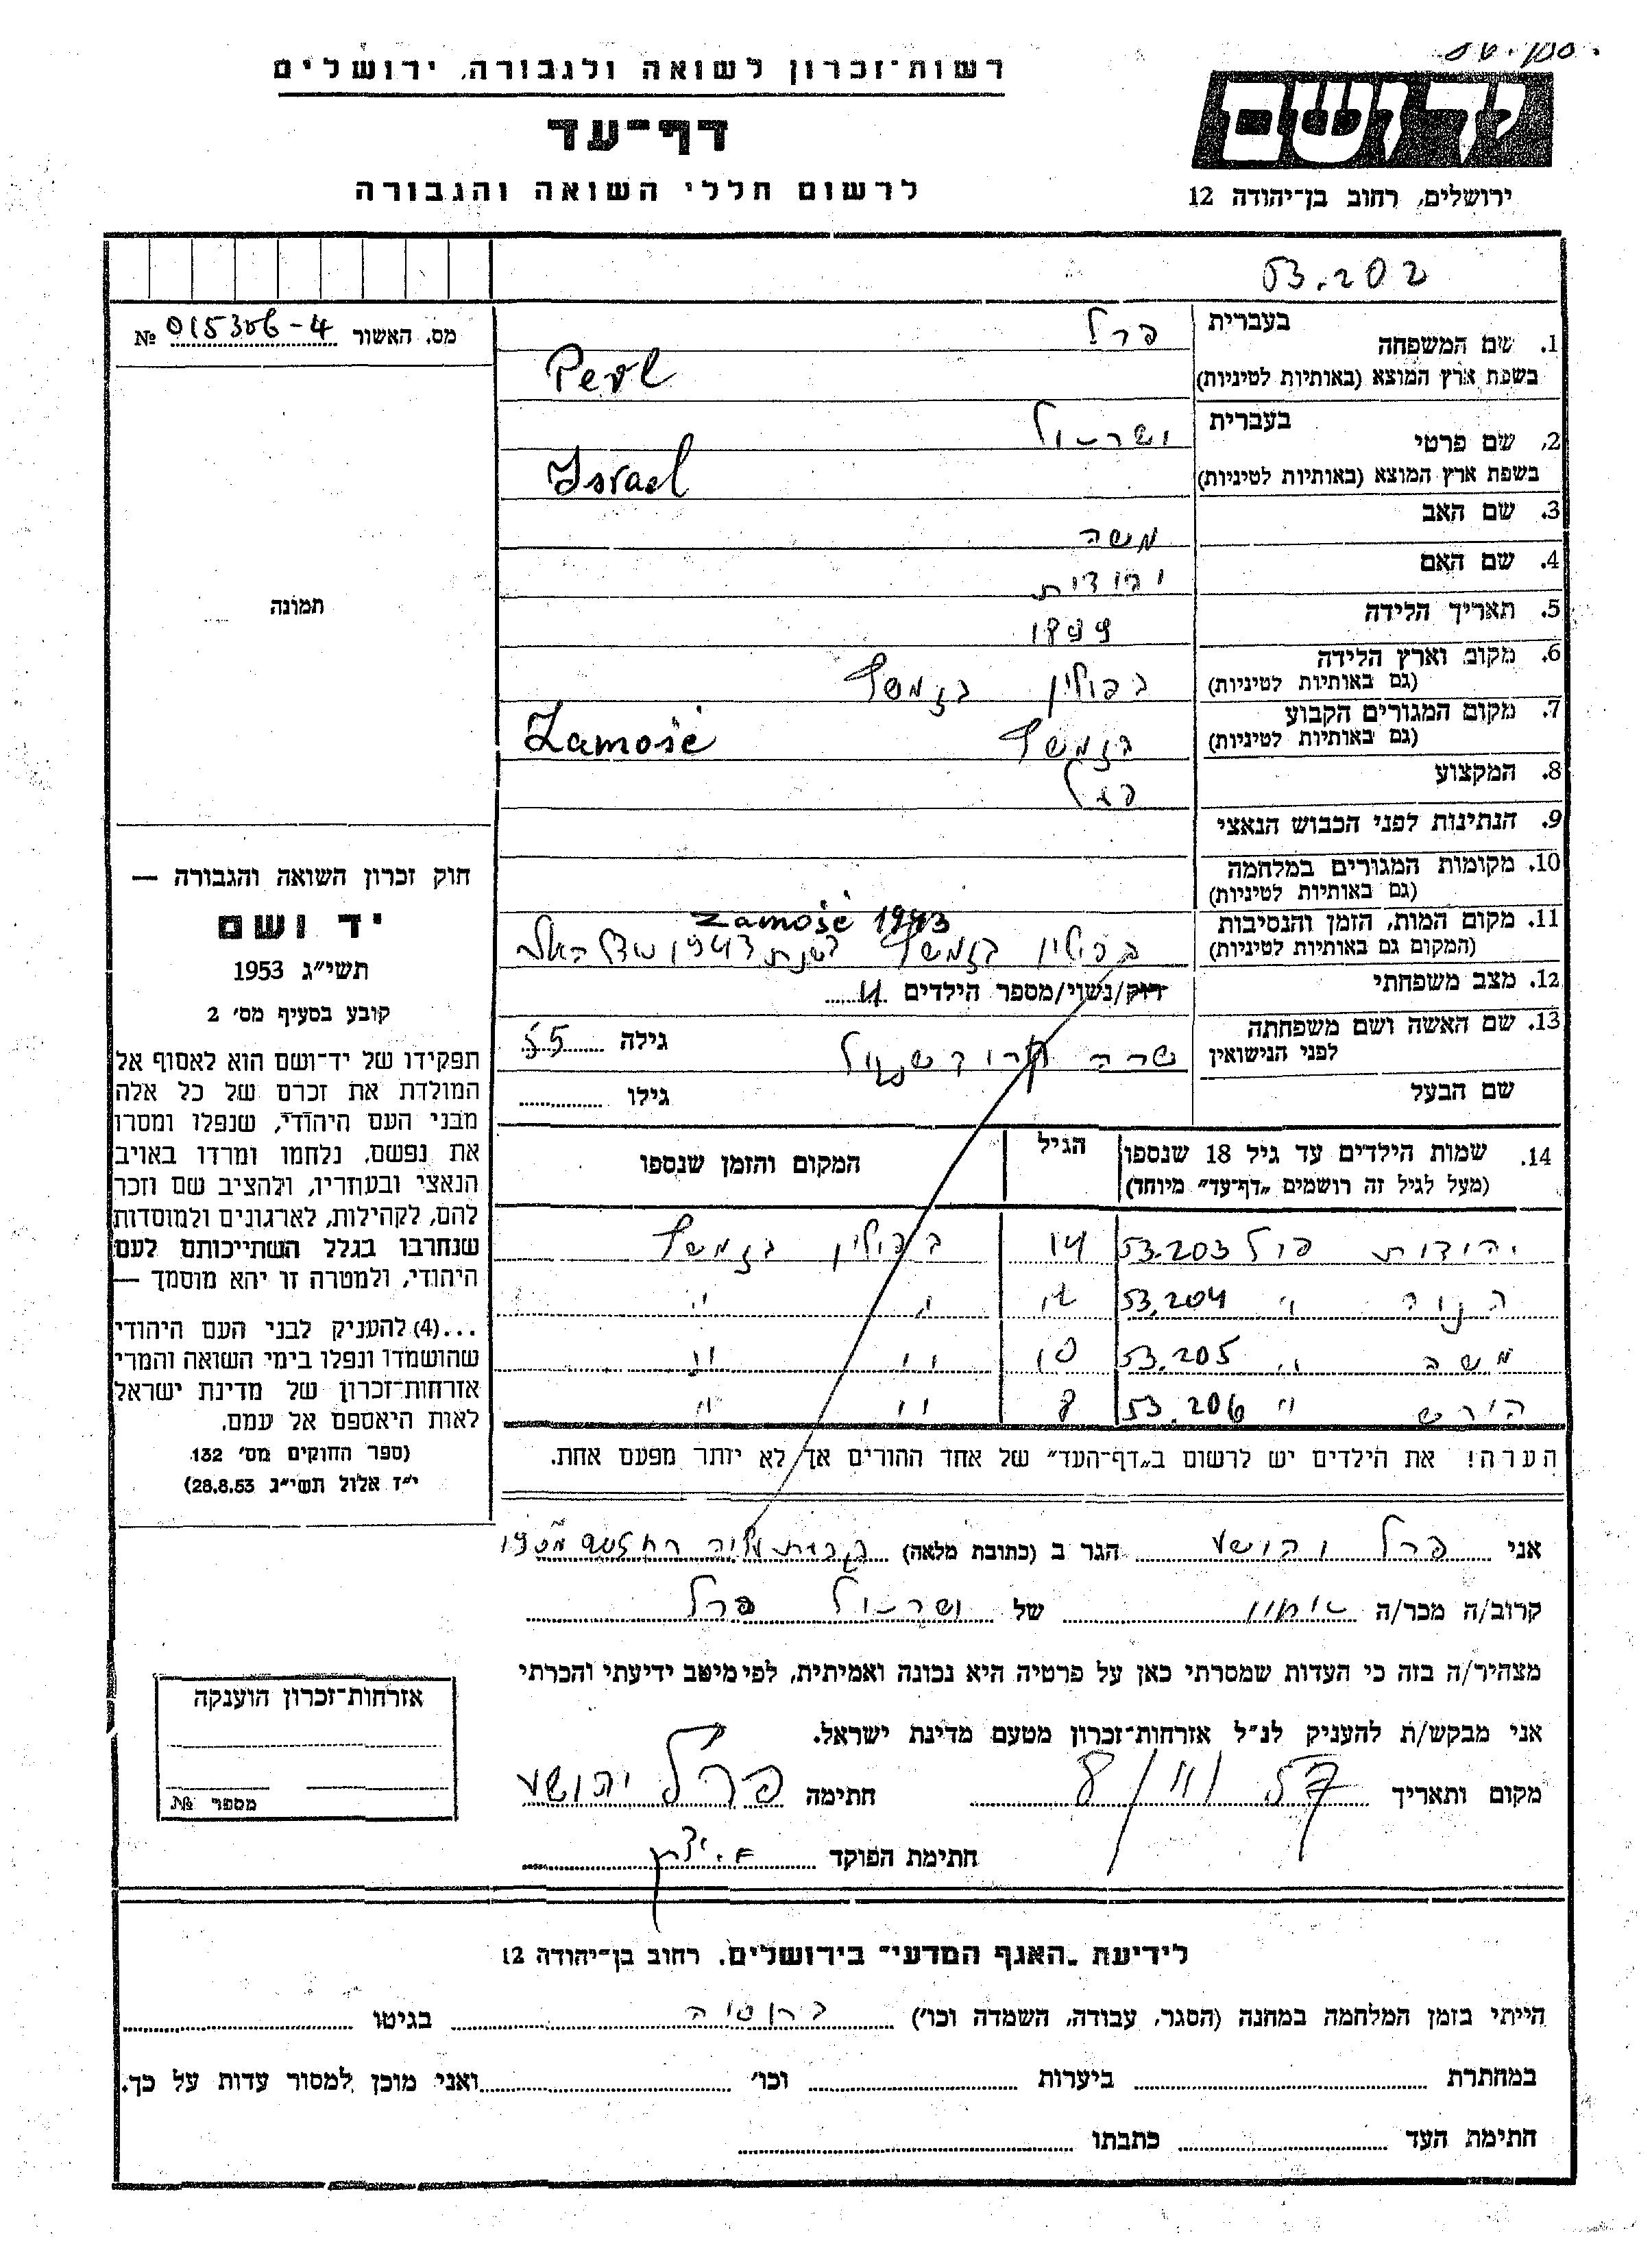 רשות־זכרון לשואה ולגבורה, ירושלים
דף־עד
לרשום חללי השואה והגבורה
יד ושם
ירושלים, רחוב בן־יהודה 12
53.202
מס. האשור 015306-4 №
תמונה
1. שם המשפחה בעברית פרל
בשפת ארץ המוצא (באותיות לטיניות) Perl
2. שם פרטי בעברית ישראל
בשפת ארץ המוצא (באותיות לטיניות) Israel
3. שם האב משה
4. שם האם יהודית
5. תאריך הלידה 1899
6. מקום וארץ הלידה בפולין בזמשץ
(גם באותיות לטיניות)
7. מקום המגורים הקבוע בזמשץ Zamość
(גם באותיות לטיניות)
8. המקצוע
9. הנתינות לפני הכבוש הנאצי
10. מקומות המגורים במלחמה
(גם באותיות לטיניות)
11. מקום המות, הזמן והנסיבות Zamość 1943
(המקום גם באותיות לטיניות) בפולין בזמשץ בשנת 1943
12. מצב משפחתי רווק/נשוי/מספר הילדים 4
13. שם האשה ושם משפחתה לפני הנישואין שרה גילה 55
שם הבעל גילו
14. שמות הילדים עד גיל 18 שנספו הגיל המקום והזמן שנספו
(מעל לגיל זה רושמים „דף־עד" מיוחד)
יהודית פרל 53.203 14 בפולין בזמשץ
" 53.204 12 " "
משה " 53.205 10 " "
הירש " 53.206 8 " "
הערה! את הילדים יש לרשום ב„דף־העד" של אחד ההורים אך לא יותר מפעם אחת.
חוק זכרון השואה והגבורה —
יד ושם
תשי״ג 1953
קובע בסעיף מס׳ 2
תפקידו של יד־ושם הוא לאסוף אל
המולדת את זכרם של כל אלה
מבני העם היהודי, שנפלו ומסרו
את נפשם, נלחמו ומרדו באויב
הנאצי ובעוזריו, ולהציב שם וזכר
להם, לקהילות, לארגונים ולמוסדות
שנחרבו בגלל השתייכותם לעם
היהודי, ולמטרה זו יהא מוסמך —
...(4) להעניק לבני העם היהודי
שהושמדו ונפלו בימי השואה והמרי
אזרחות־זכרון של מדינת ישראל
לאות היאספם אל עמם.
(ספר החוקים מס׳ 132
י״ז אלול תשי״ג 28.8.53)
אני פרל יהושע הגר ב (כתובת מלאה)
קרוב/ה מכר/ה של ישראל פרל
מצהיר/ה בזה כי העדות שמסרתי כאן על פרטיה היא נכונה ואמיתית, לפי מיטב ידיעתי והכרתי
אני מבקש/ת להעניק לנ״ל אזרחות־זכרון מטעם מדינת ישראל.
מקום ותאריך חתימה פרל יהושע
חתימת הפוקד
אזרחות־זכרון הוענקה
מספר №
לידיעת „האגף המדעי" בירושלים, רחוב בן־יהודה 12
הייתי בזמן המלחמה במחנה (הסגר, עבודה, השמדה וכו׳) ברוסיה בגיטו
במחתרת ביערות וכו׳ ואני מוכן למסור עדות על כך.
חתימת העד כתבתו